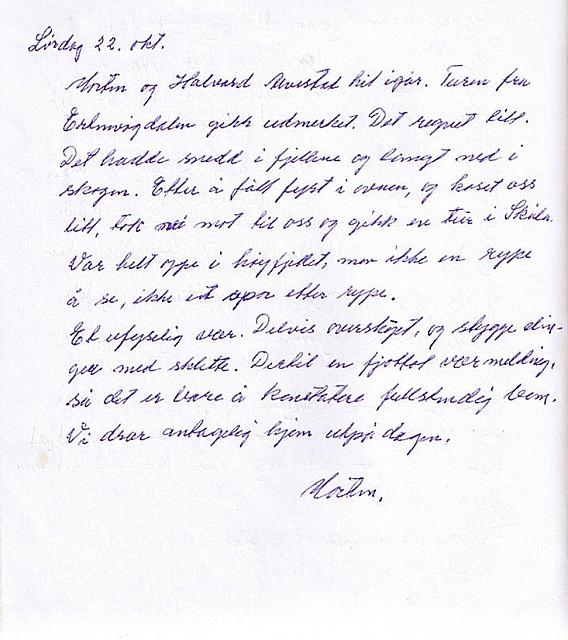 Lørdag 22. okt.
Morten og Halvard til igår. Turen fra
gikk udmerket. Det regnet litt.
Det hadde snedd i fjellene og langt ned i
skogen. Efter å fått fyrt i ovnen, og koset oss
litt, tok mot til oss og gikk en tur i
Var helt oppe i høyfjellet, men ikke en rype
å se, ikke et spor etter rype.
Et ufyselig vær. Delvis overskyet, og skygge
med sludd. Dertil en værmelding,
så det er bare å konstatere fullstendig bom.
Vi drar antagelig hjem utpå dagen.
Morten.